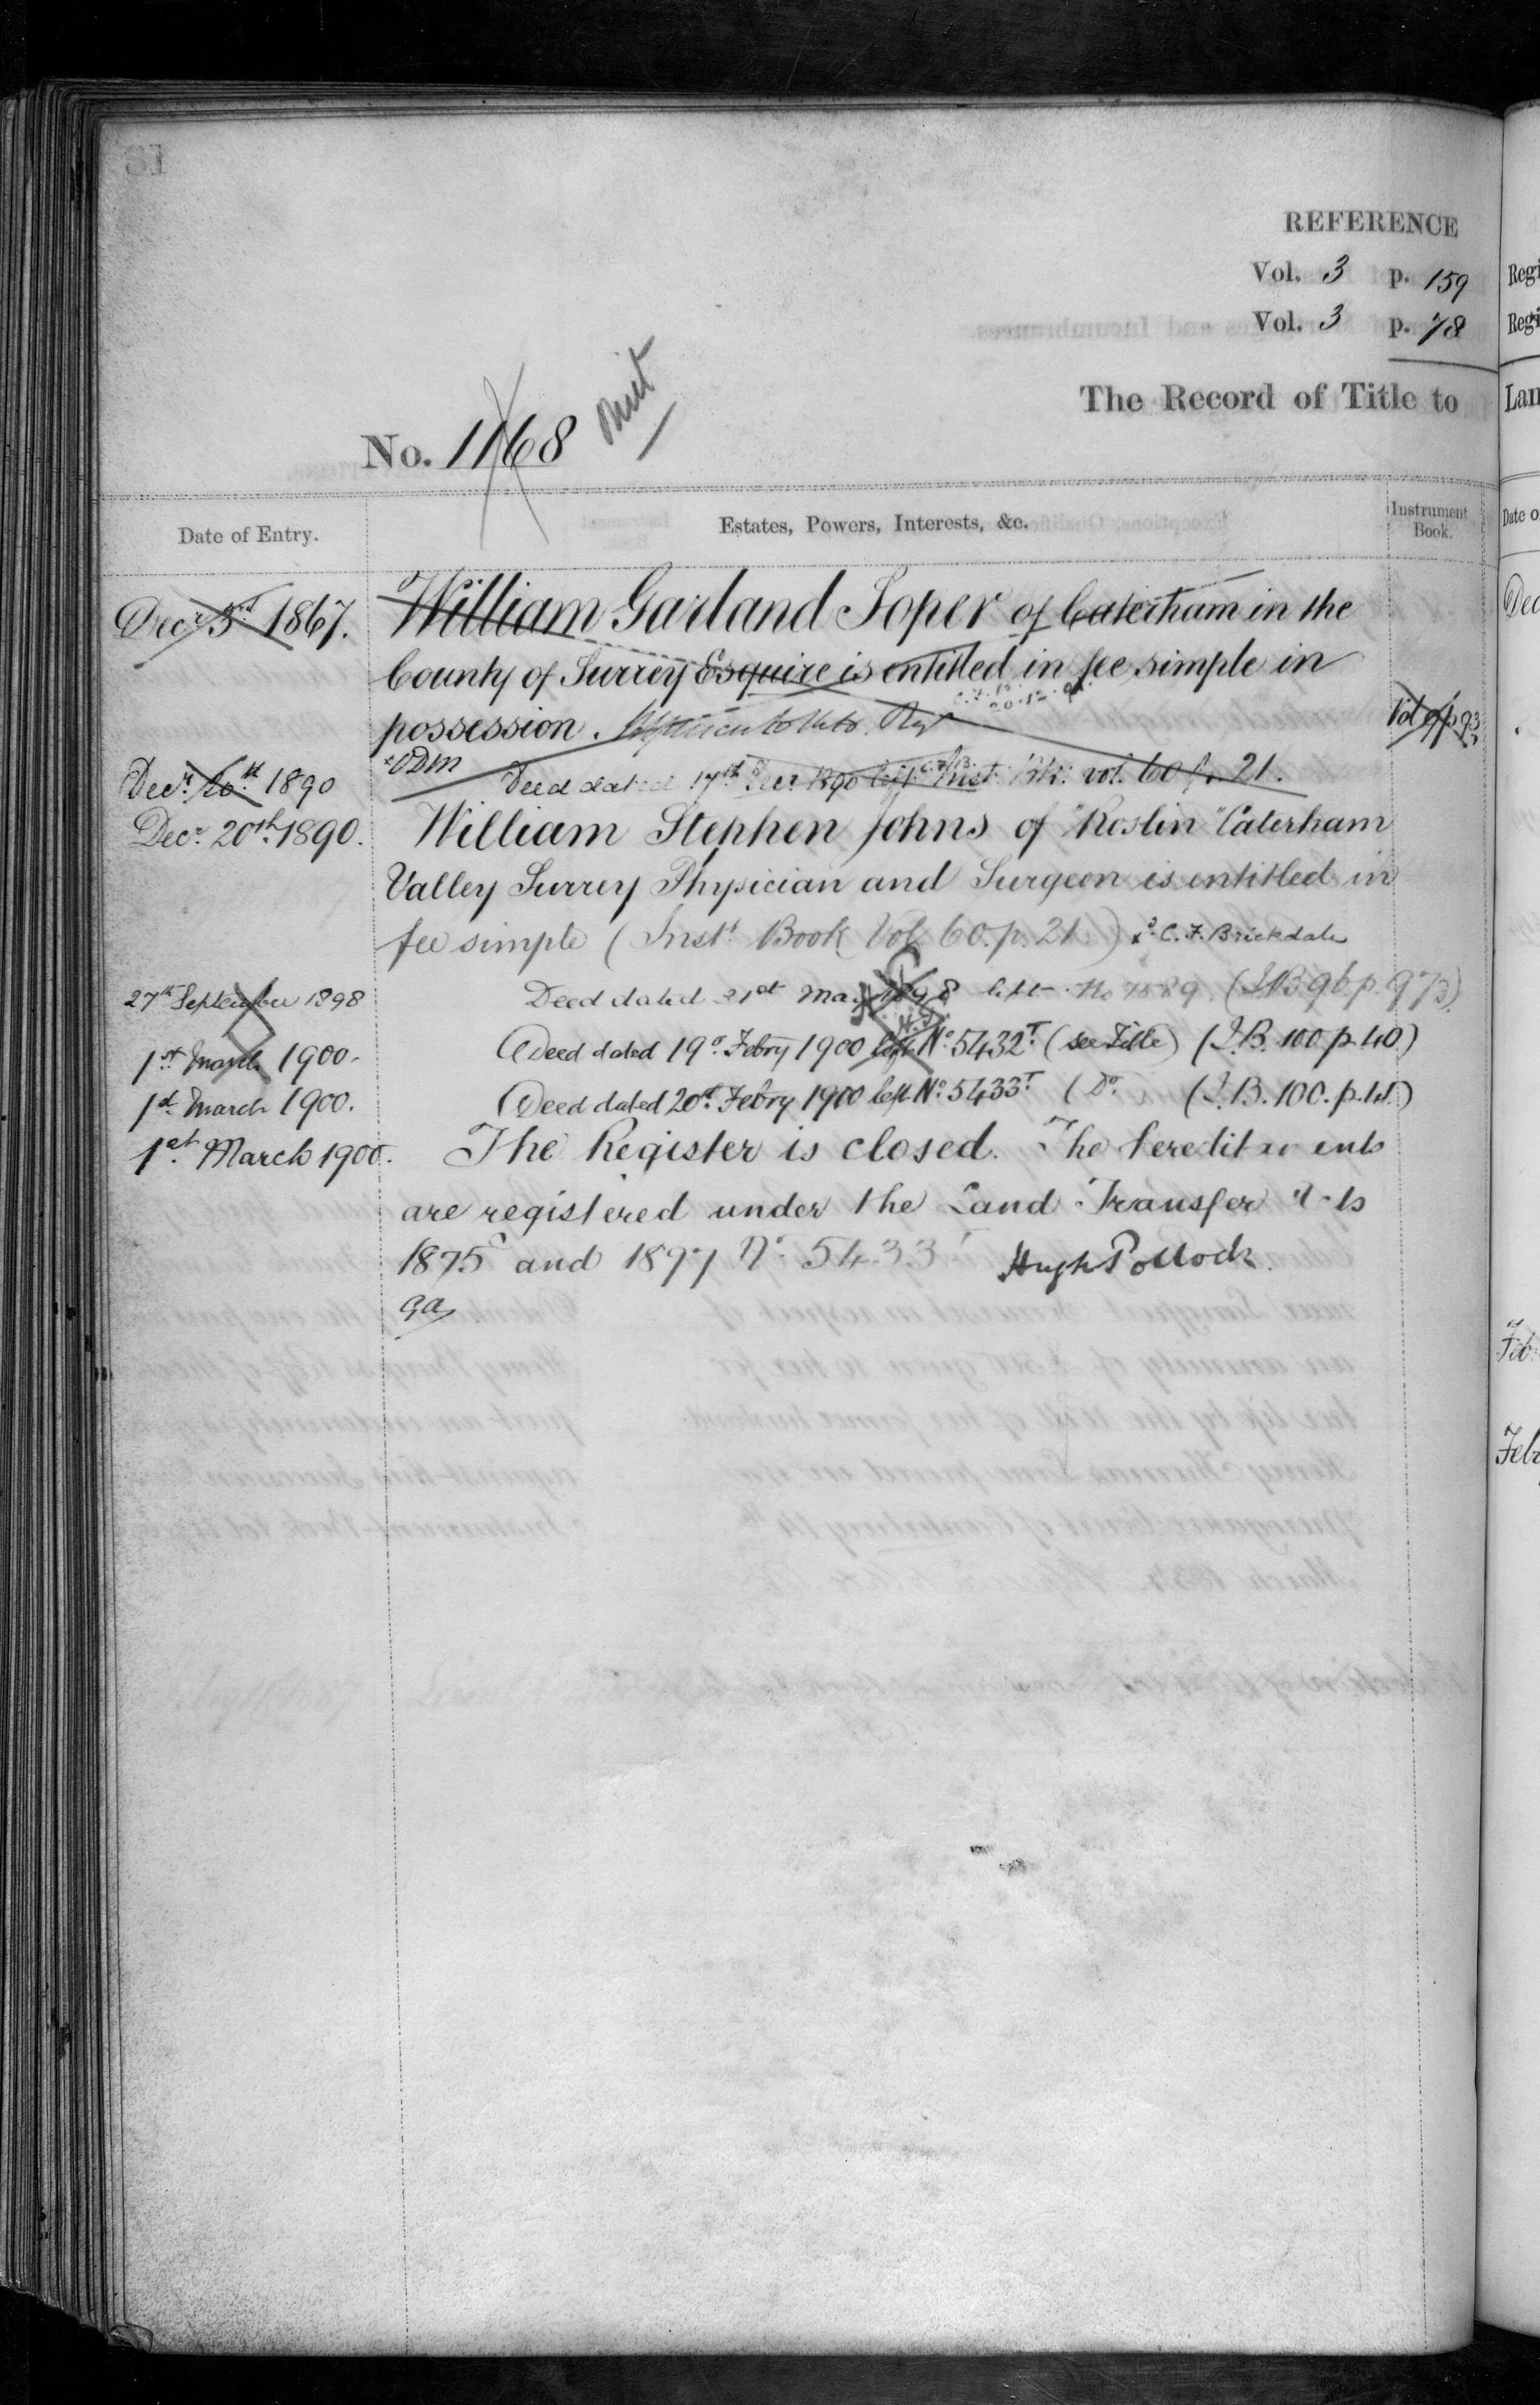 REFERENCE
Vol. 3 p. 159
Vol. 3 p. 78
The Record of Title to
No. 1168
Date of Entry.
Estates, Powers, Interests, &c.
Instrument Book.
Decr 3rd 1867. William Garland Soper of Caterham in the
County of Surrey Esquire is entitled in fee simple in
possession.
Decr 20th 1890 Deed dated 17th Decr 1890 left Inst. Bk: vol. 60 p. 21.
Decr 20th 1890. William Stephen Johns of "Roslin" Caterham
Valley Surrey Physician and Surgeon is entitled in
fee simple (Inst. Book Vol. 60. p. 21.) C. F. Brickdale
27th September 1898 Deed dated 21st left No (I.B. 96 p. 973)
1st March 1900. (Deed dated 19th Febry 1900 left No. 5432T (see Title) (I.B. 100 p. 40)
1st March 1900. (Deed dated 20th Febry 1900 left No. 5433T (Do. (I.B. 100. p. 41.)
1st March 1900. The Register is closed. The Hereditaments
are registered under the Land Transfer Acts
1875 and 1897 No. 5433T Hugh Pollock.